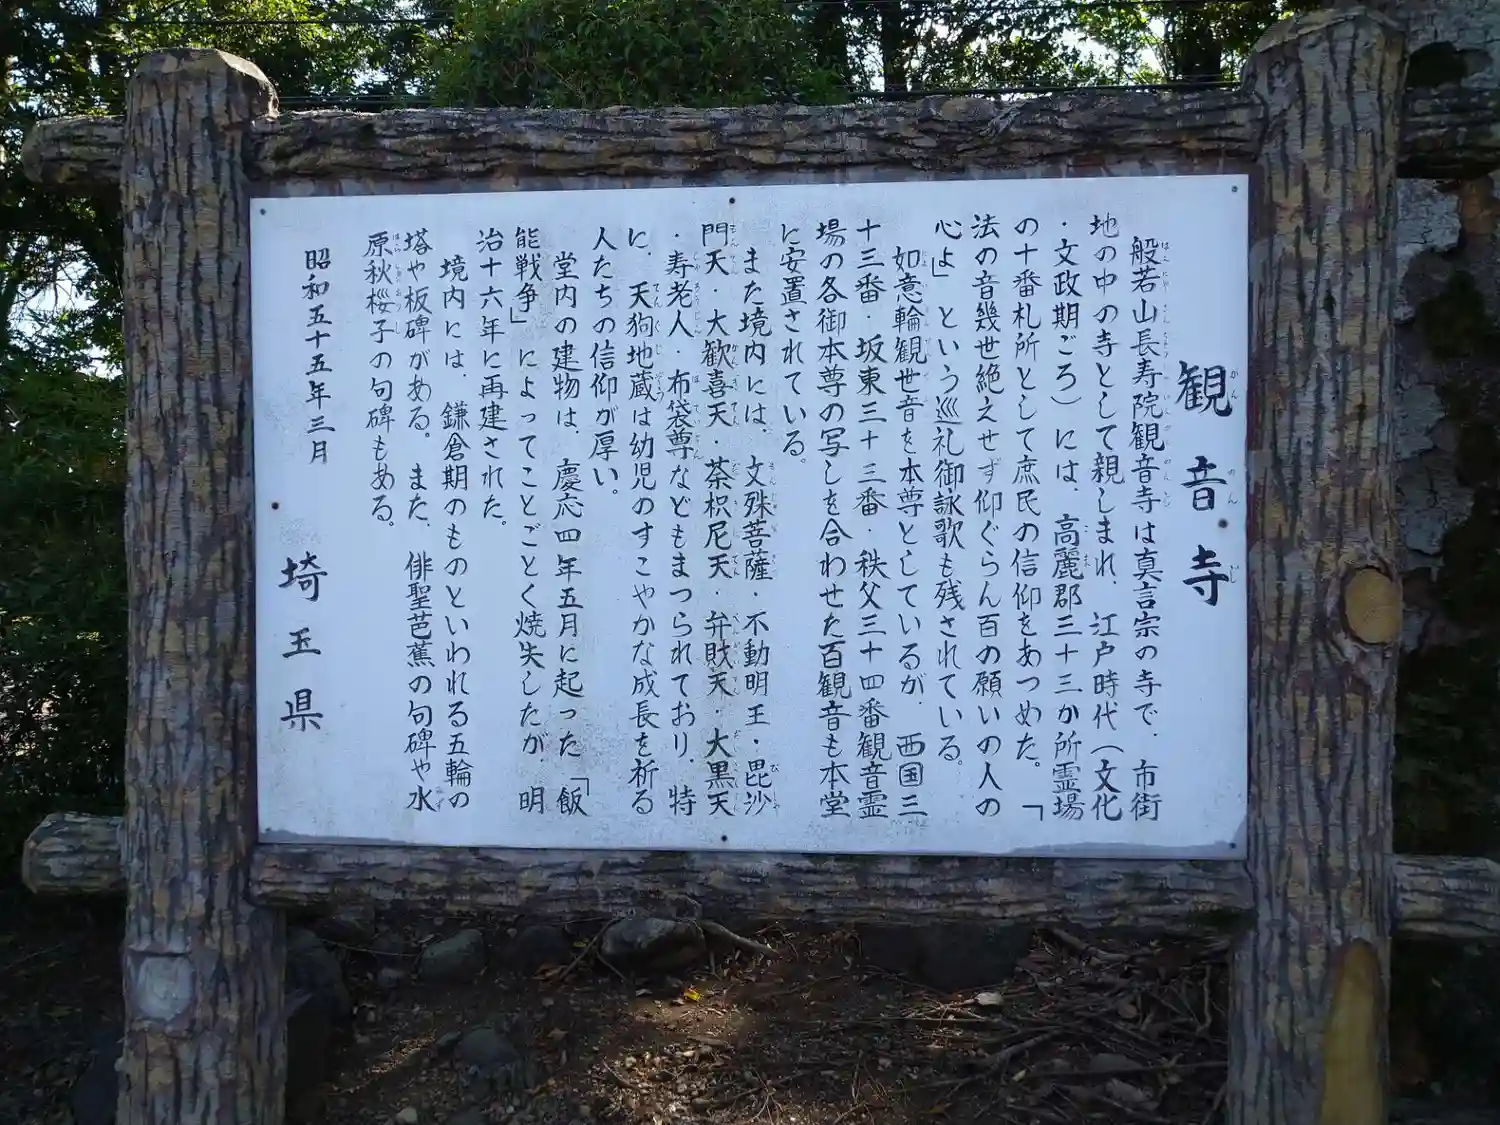 観音寺
般若山長寿院観音寺は真言宗の寺で、市街
地の中の寺として親しまれ、江戸時代（文化
・文政期ごろ）には、高麗郡三十三か所霊場
の十番札所として庶民の信仰をあつめた。「
法の音幾世絶えせず仰ぐらん百の願いの人の
心よ」という巡礼御詠歌も残されている。
如意輪観世音を本尊としているが、西国三
十三番・坂東三十三番・秩父三十四番観音霊
場の各御本尊の写しを合わせた百観音も本堂
に安置されている。
また境内には、文殊菩薩・不動明王・毘沙
門天・大歓喜天・荼枳尼天・弁財天・大黒天
・寿老人・布袋尊などもまつられており、特
に、天狗地蔵は幼児のすこやかな成長を祈る
人たちの信仰が厚い。
堂内の建物は、慶応四年五月に起った「飯
能戦争」によってことごとく焼失したが、明
治十六年に再建された。
境内には、鎌倉期のものといわれる五輪の
塔や板碑がある。また、俳聖芭蕉の句碑や水
原秋桜子の句碑もある。
昭和五十五年三月
埼玉県